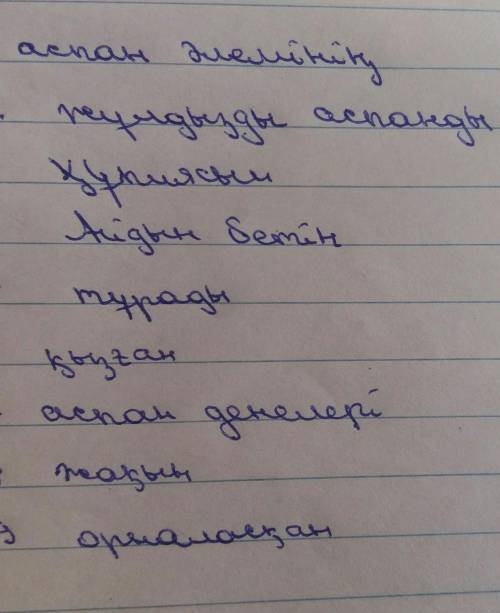 аспан әлемінің
жұлдызды аспанды
құпиясын
Айдын бетін
тұрады
қызған
аспан денелері
жақын
орналасқан